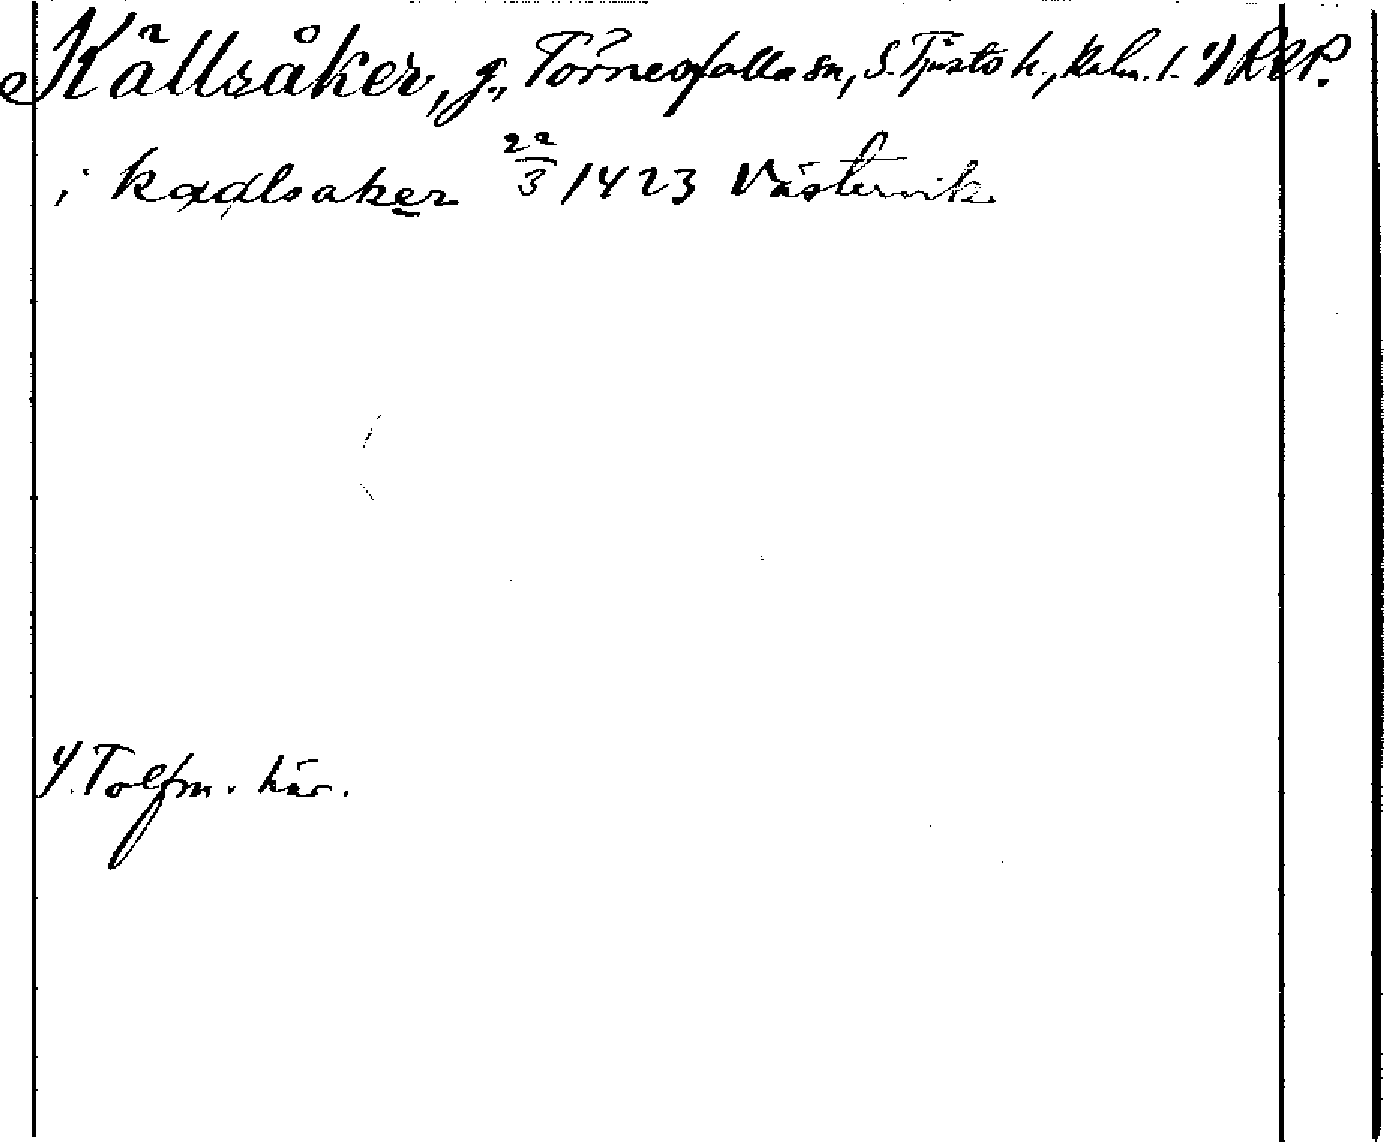 Källsåker, g., Törnesfalla sn, S. Tjusts h., Kalm. l. 1) RAP.
i kaalsaker 22/3 1423 Västervik
1). Tolfm. här.